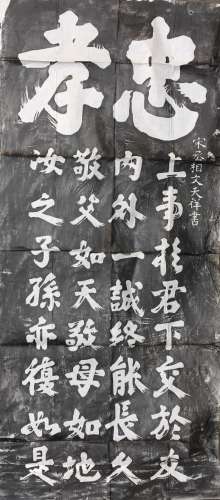 忠孝
宋丞相文天祥書
上事於君下交於友
內外一誠終能長久
敬父如天敬母如地
汝之子孫亦復如是